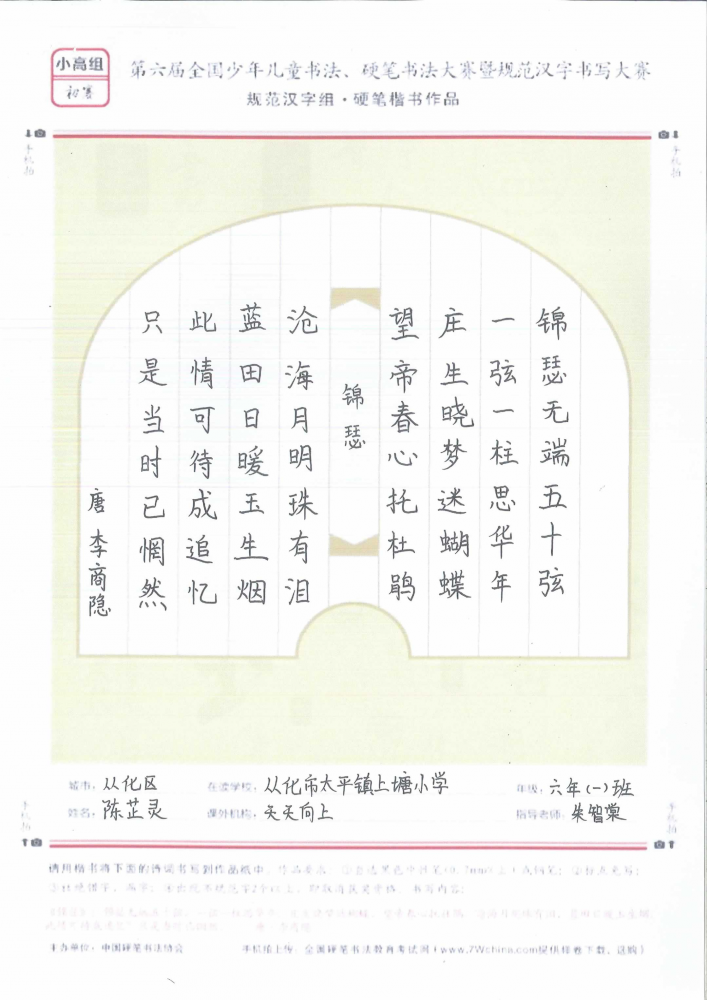 小高组
初赛
第六届全国少年儿童书法、硬笔书法大赛暨规范汉字书写大赛
规范汉字组·硬笔楷书作品
手机拍
手机拍
锦瑟无端五十弦
一弦一柱思华年
庄生晓梦迷蝴蝶
望帝春心托杜鹃
锦瑟
沧海月明珠有泪
蓝田日暖玉生烟
此情可待成追忆
只是当时已惘然
唐 李商隐
城市：从化区 在读学校：从化市太平镇上塘小学 年级：六年(一)班
姓名：陈芷灵 课外机构：天天向上 指导老师：朱智棠
手机拍
手机拍
请用楷书将下面的诗词书写到作品纸中。作品要求：
主办单位：中国硬笔书法协会 手机拍上传：全国硬笔书法教育考试网（www.7Wchina.com提供样卷下载、选购）